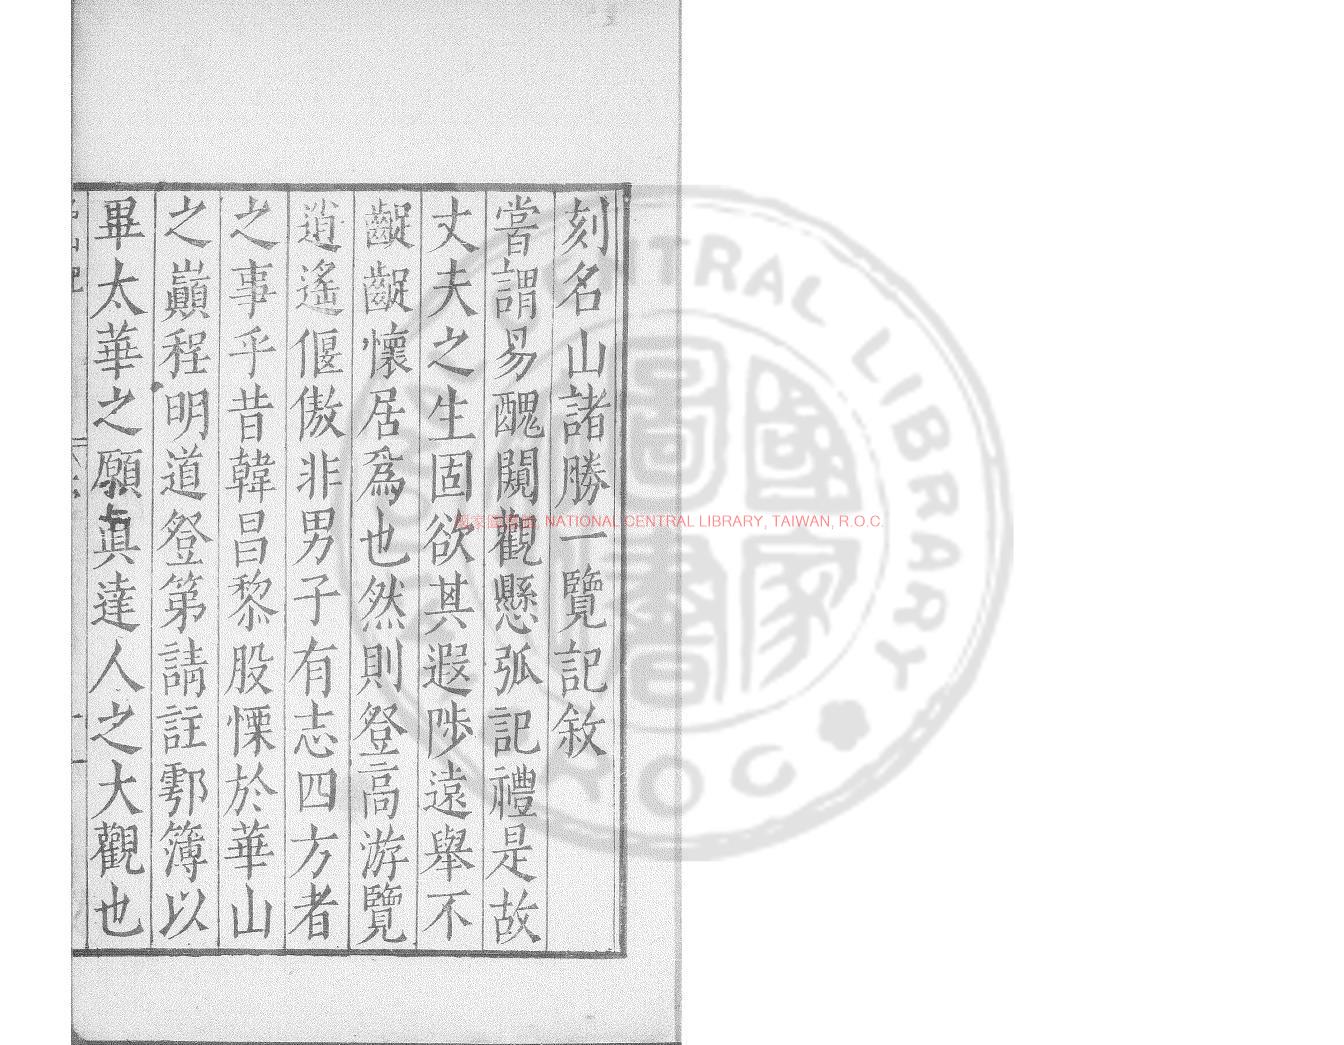 刻名山諸勝一覽記敘
嘗謂易醜闚觀懸弧記禮是故
丈夫之生固欲其遐陟遠舉不
齪齪懷居爲也然則登高游覽
逍遙偃傲非男子有志四方者
之事乎昔韓昌黎股慄於華山
之巔程明道登第請註鄠簿以
畢太華之願眞達人之大觀也
國家圖書館, NATIONAL CENTRAL LIBRARY, TAIWAN, R.O.C.
CENTRAL LIBRARY
R.O.C
國家圖書